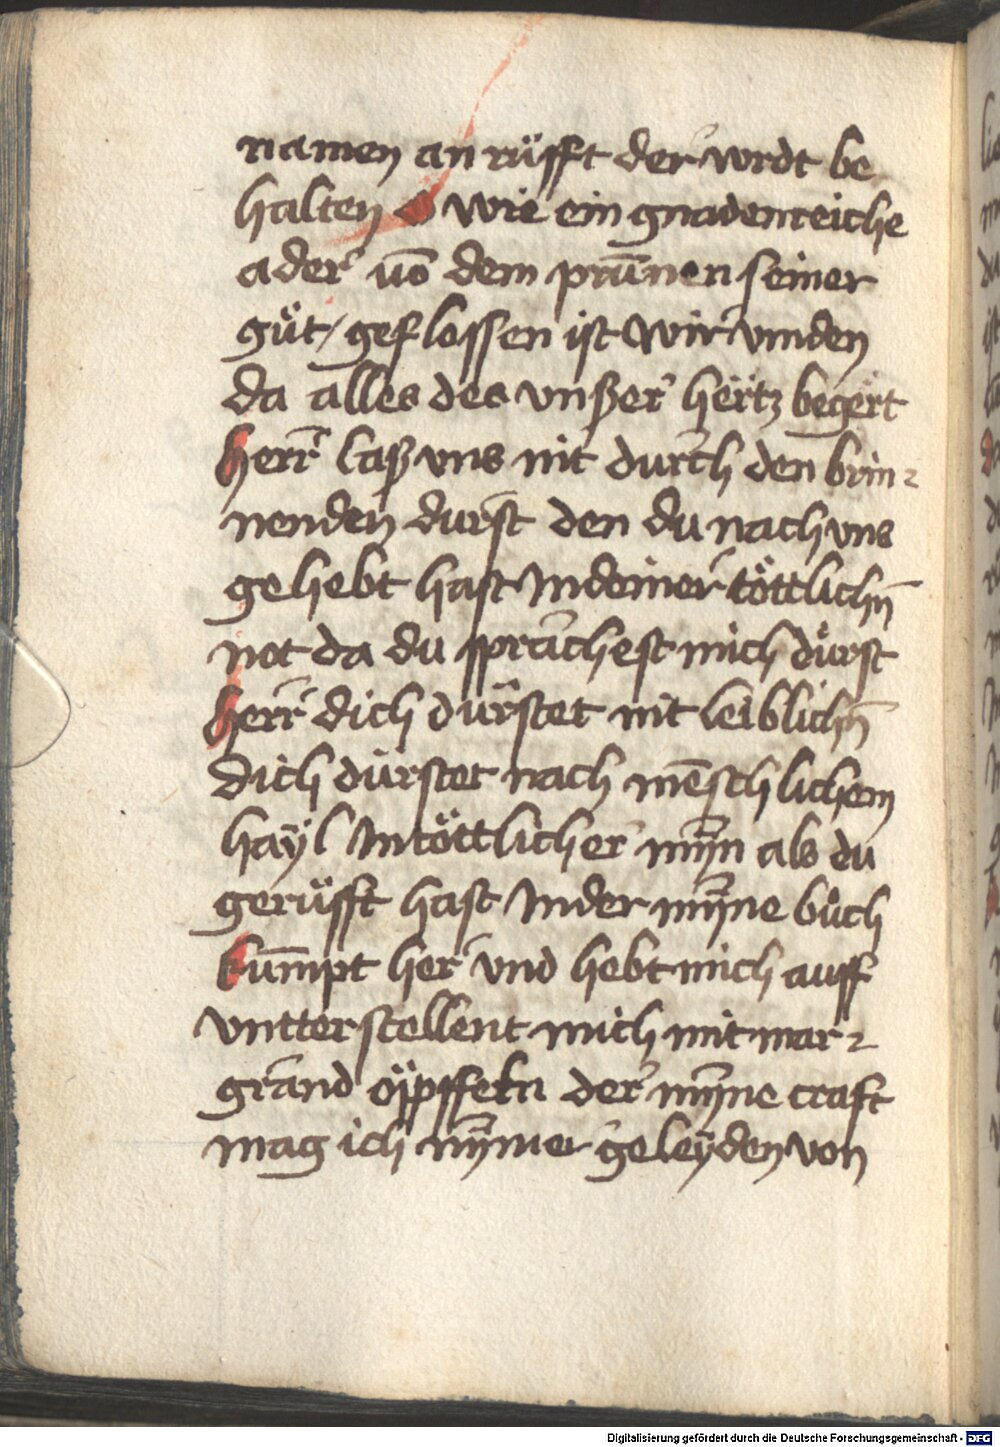 namen an rüfft der wrdt be
halten O wie ein gnadenreiche
ader vō dem prūnnen seiner
güt / geflossen ist wir vinden
da alles des vnßer hërtz begërt
herr laß vns nit durch den brin-
nenden durst den du nach vns
gehebt hast In deiner töttlichn̄
not da du sprachest mich dürst
herr dich dürstet nit leiblichn̄
dich dürstet nach mēschlichem
hayl In töttlicher mȳn als du
gerüfft hast In der mȳne bůch
kūmpt her vnd hebt mich auff
vntterstellent mich mit mar-
grand öpffeln der mȳne craft
mag ich nȳmer geleyden von
Digitalisierung gefördert durch die Deutsche Forschungsgemeinschaft - DFG